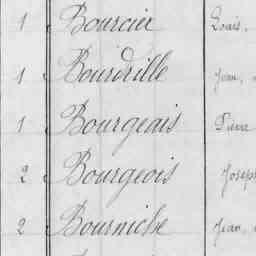 1 Bourcier Louis,
1 Bourdrille Jean,
1 Bourgeais Pierre
2 Bourgeois Joseph
2 Bourniche Jean,